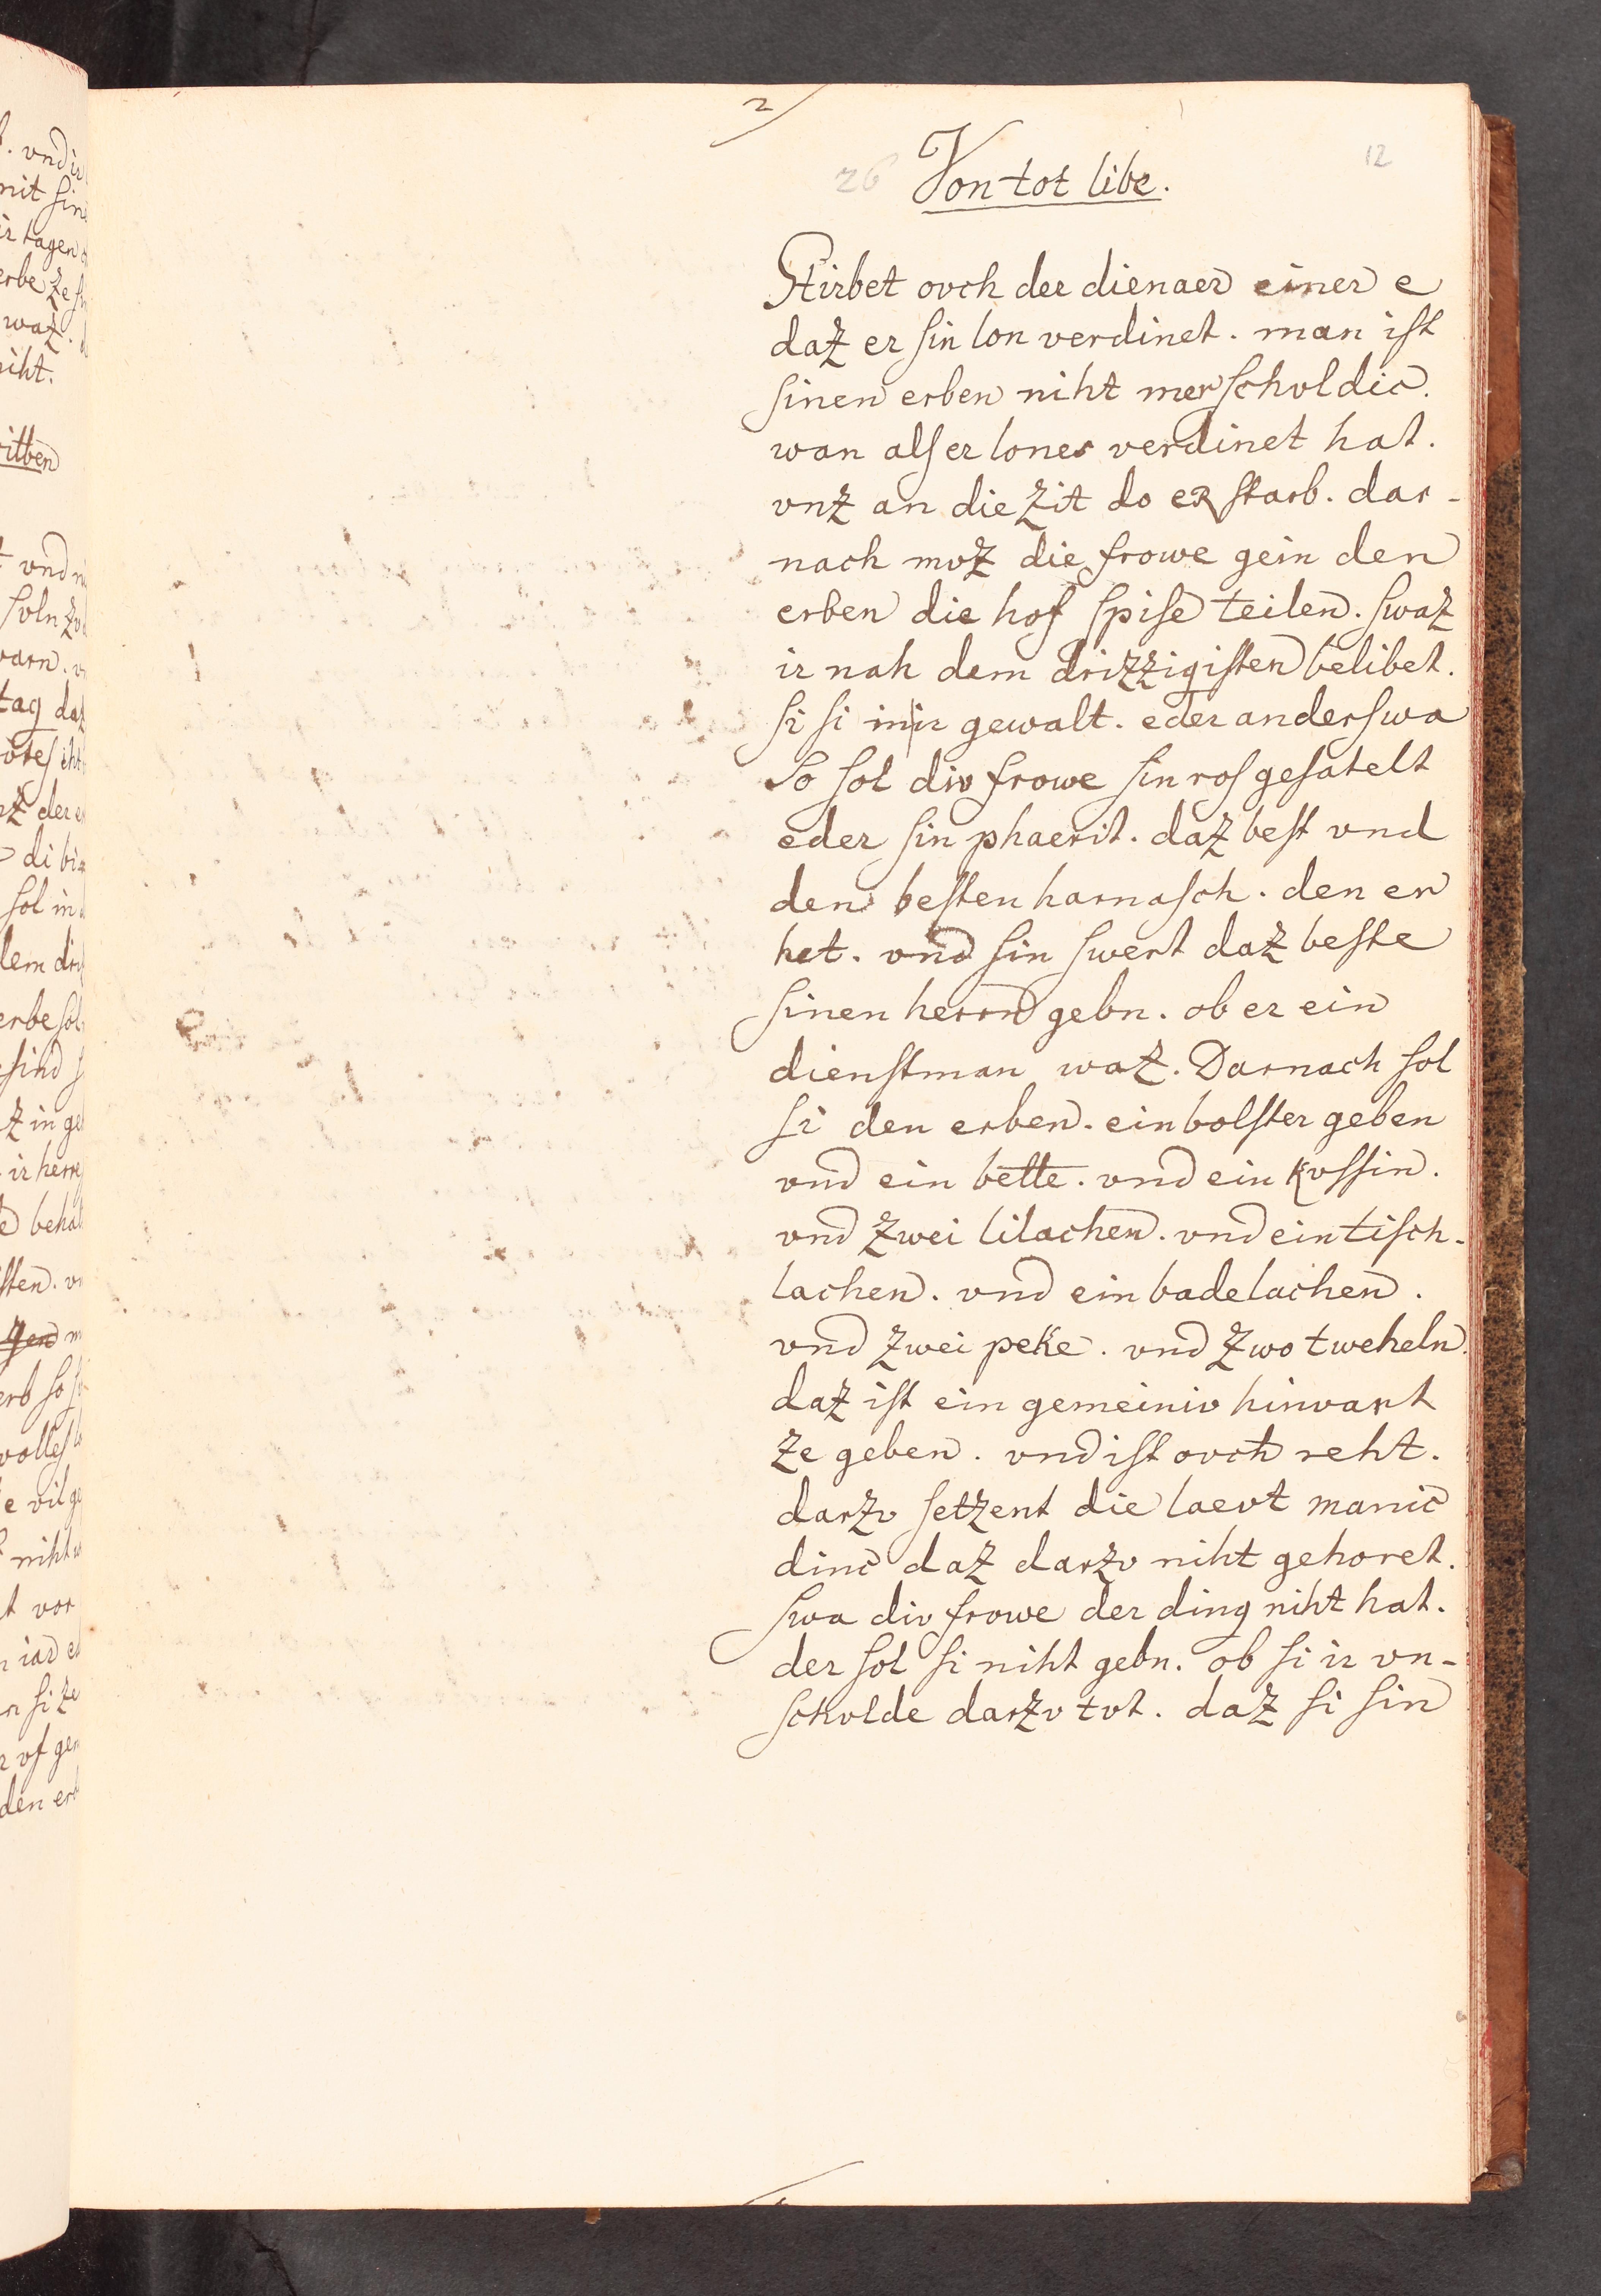 2
12
26 Von tot libe.
Stirbet ovch der dienaer einer e
daz er ſin lon verdinet. man iſt
ſinen erben niht mer ſchvldic.
wan alſ er lones verdinet hat.
vnz an die zit do eR ſtarb. dar-
nach mvz die frowe gein den
erben die hof ſpiſe teilen. ſwaz
ir nah dem drizzigiſten belibet.
ſi ſi in ir gewalt. eder anderſwa
So ſol div frowe ſin roſ geſatelt
eder ſin phaerit. daz beſt vnd
den beſten harnaſch. den er
het. vnd ſin ſwert daz beſte
ſinen herrn gebn. ob er ein
dienſtman waz. Darnach ſol
ſi den erben. ein bolſter geben
vnd ein bette. vnd ein kvſſin.
vnd zwei lilachen. vnd ein tiſch-
lachen. vnd ein badelachen.
vnd zwei peke. vnd zwo tweheln.
daz iſt ein gemeiniv hinvart
ze geben. vnd iſt ovch reht.
darzv ſetzent die laevt manic
dinc daz darzv niht gehoret.
ſwa div frowe der ding niht hat.
der ſol ſi niht gebn. ob ſi ir vn-
ſchvlde darzv tvt. daz ſi ſin